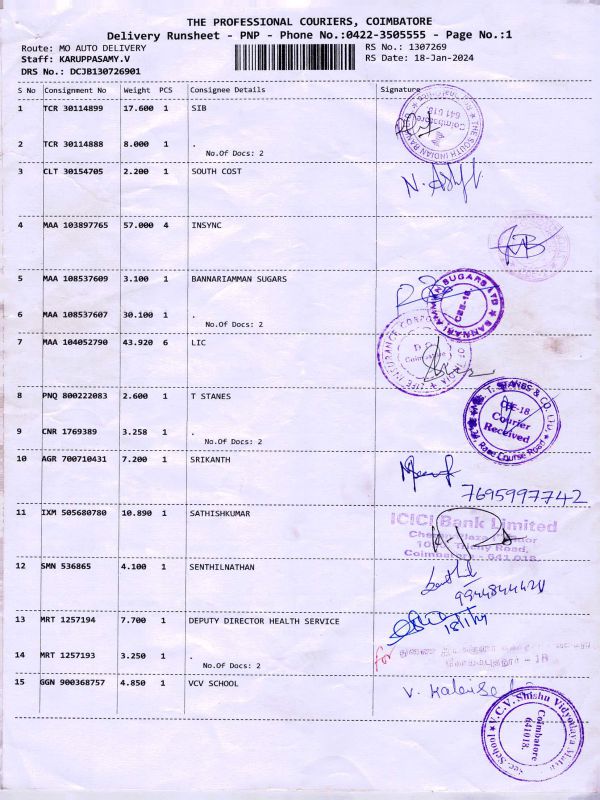 THE PROFESSIONAL COURIERS, COIMBATORE
Delivery Runsheet - PNP - Phone No.:0422-3505555 - Page No.:1
Route: MO AUTO DELIVERY RS No.: 1307269
Staff: KARUPPASAMY.V RS Date: 18-Jan-2024
DRS No.: DCJB130726901
S No Consignment No Weight PCS Consignee Details Signature
1 TCR 30114899 17.600 1 SIB
2 TCR 30114888 8.000 1 .
No.Of Docs: 2
THE SOUTH INDIAN BANK
Coimbatore
641 018
3 CLT 30154705 2.200 1 SOUTH COST
4 MAA 103897765 57.000 4 INSYNC
5 MAA 108537609 3.100 1 BANNARIAMMAN SUGARS
6 MAA 108537607 30.100 1 .
No.Of Docs: 2
BANNARI AMMAN SUGARS LTD
CBE-18
7 MAA 104052790 43.920 6 LIC
LIFE INSURANCE CORPORATION OF INDIA
Coimbatore
8 PNQ 800222083 2.600 1 T STANES
9 CNR 1769389 3.258 1 .
No.Of Docs: 2
T. STANES & CO. LTD.
CBE-18
Courier
Received
Race Course Road
10 AGR 700710431 7.200 1 SRIKANTH
7695997742
11 IXM 505680780 10.890 1 SATHISHKUMAR
ICICI Bank Limited
Road,
Coimbatore - 641 018
12 SMN 536865 4.100 1 SENTHILNATHAN
13 MRT 1257194 7.700 1 DEPUTY DIRECTOR HEALTH SERVICE
14 MRT 1257193 3.250 1 .
No.Of Docs: 2
For
15 GGN 900368757 4.850 1 VCV SCHOOL
V.C.V. Shishu Vidyodaya Matric
Sec. School
Coimbatore
641018.